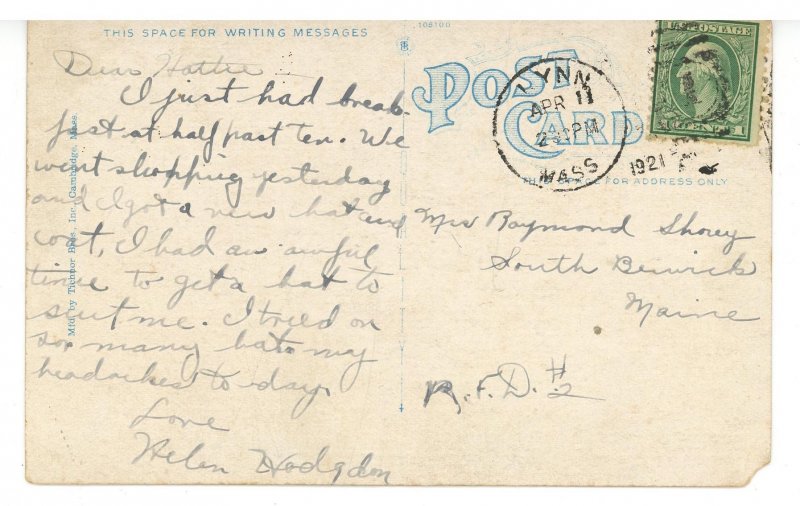 THIS SPACE FOR WRITING MESSAGES
108100
Dear Hattie
I just had break-
fast at half past ten. We
went shopping yesterday
and I got a new hat and
coat, I had an awful
time to get a hat to
suit me. I tried on
so many hats my
head aches to-day.
Love
Helen Hodgdon
Mfd. by Tichnor Bros., Inc., Cambridge, Mass.
POST
CARD
LYNN
APR 11
2 PM
1921
MASS
THIS SPACE FOR ADDRESS ONLY
POSTAGE
CENTS
1
Mrs Raymond Shorey
South Berwick
Maine
R.F.D. #2